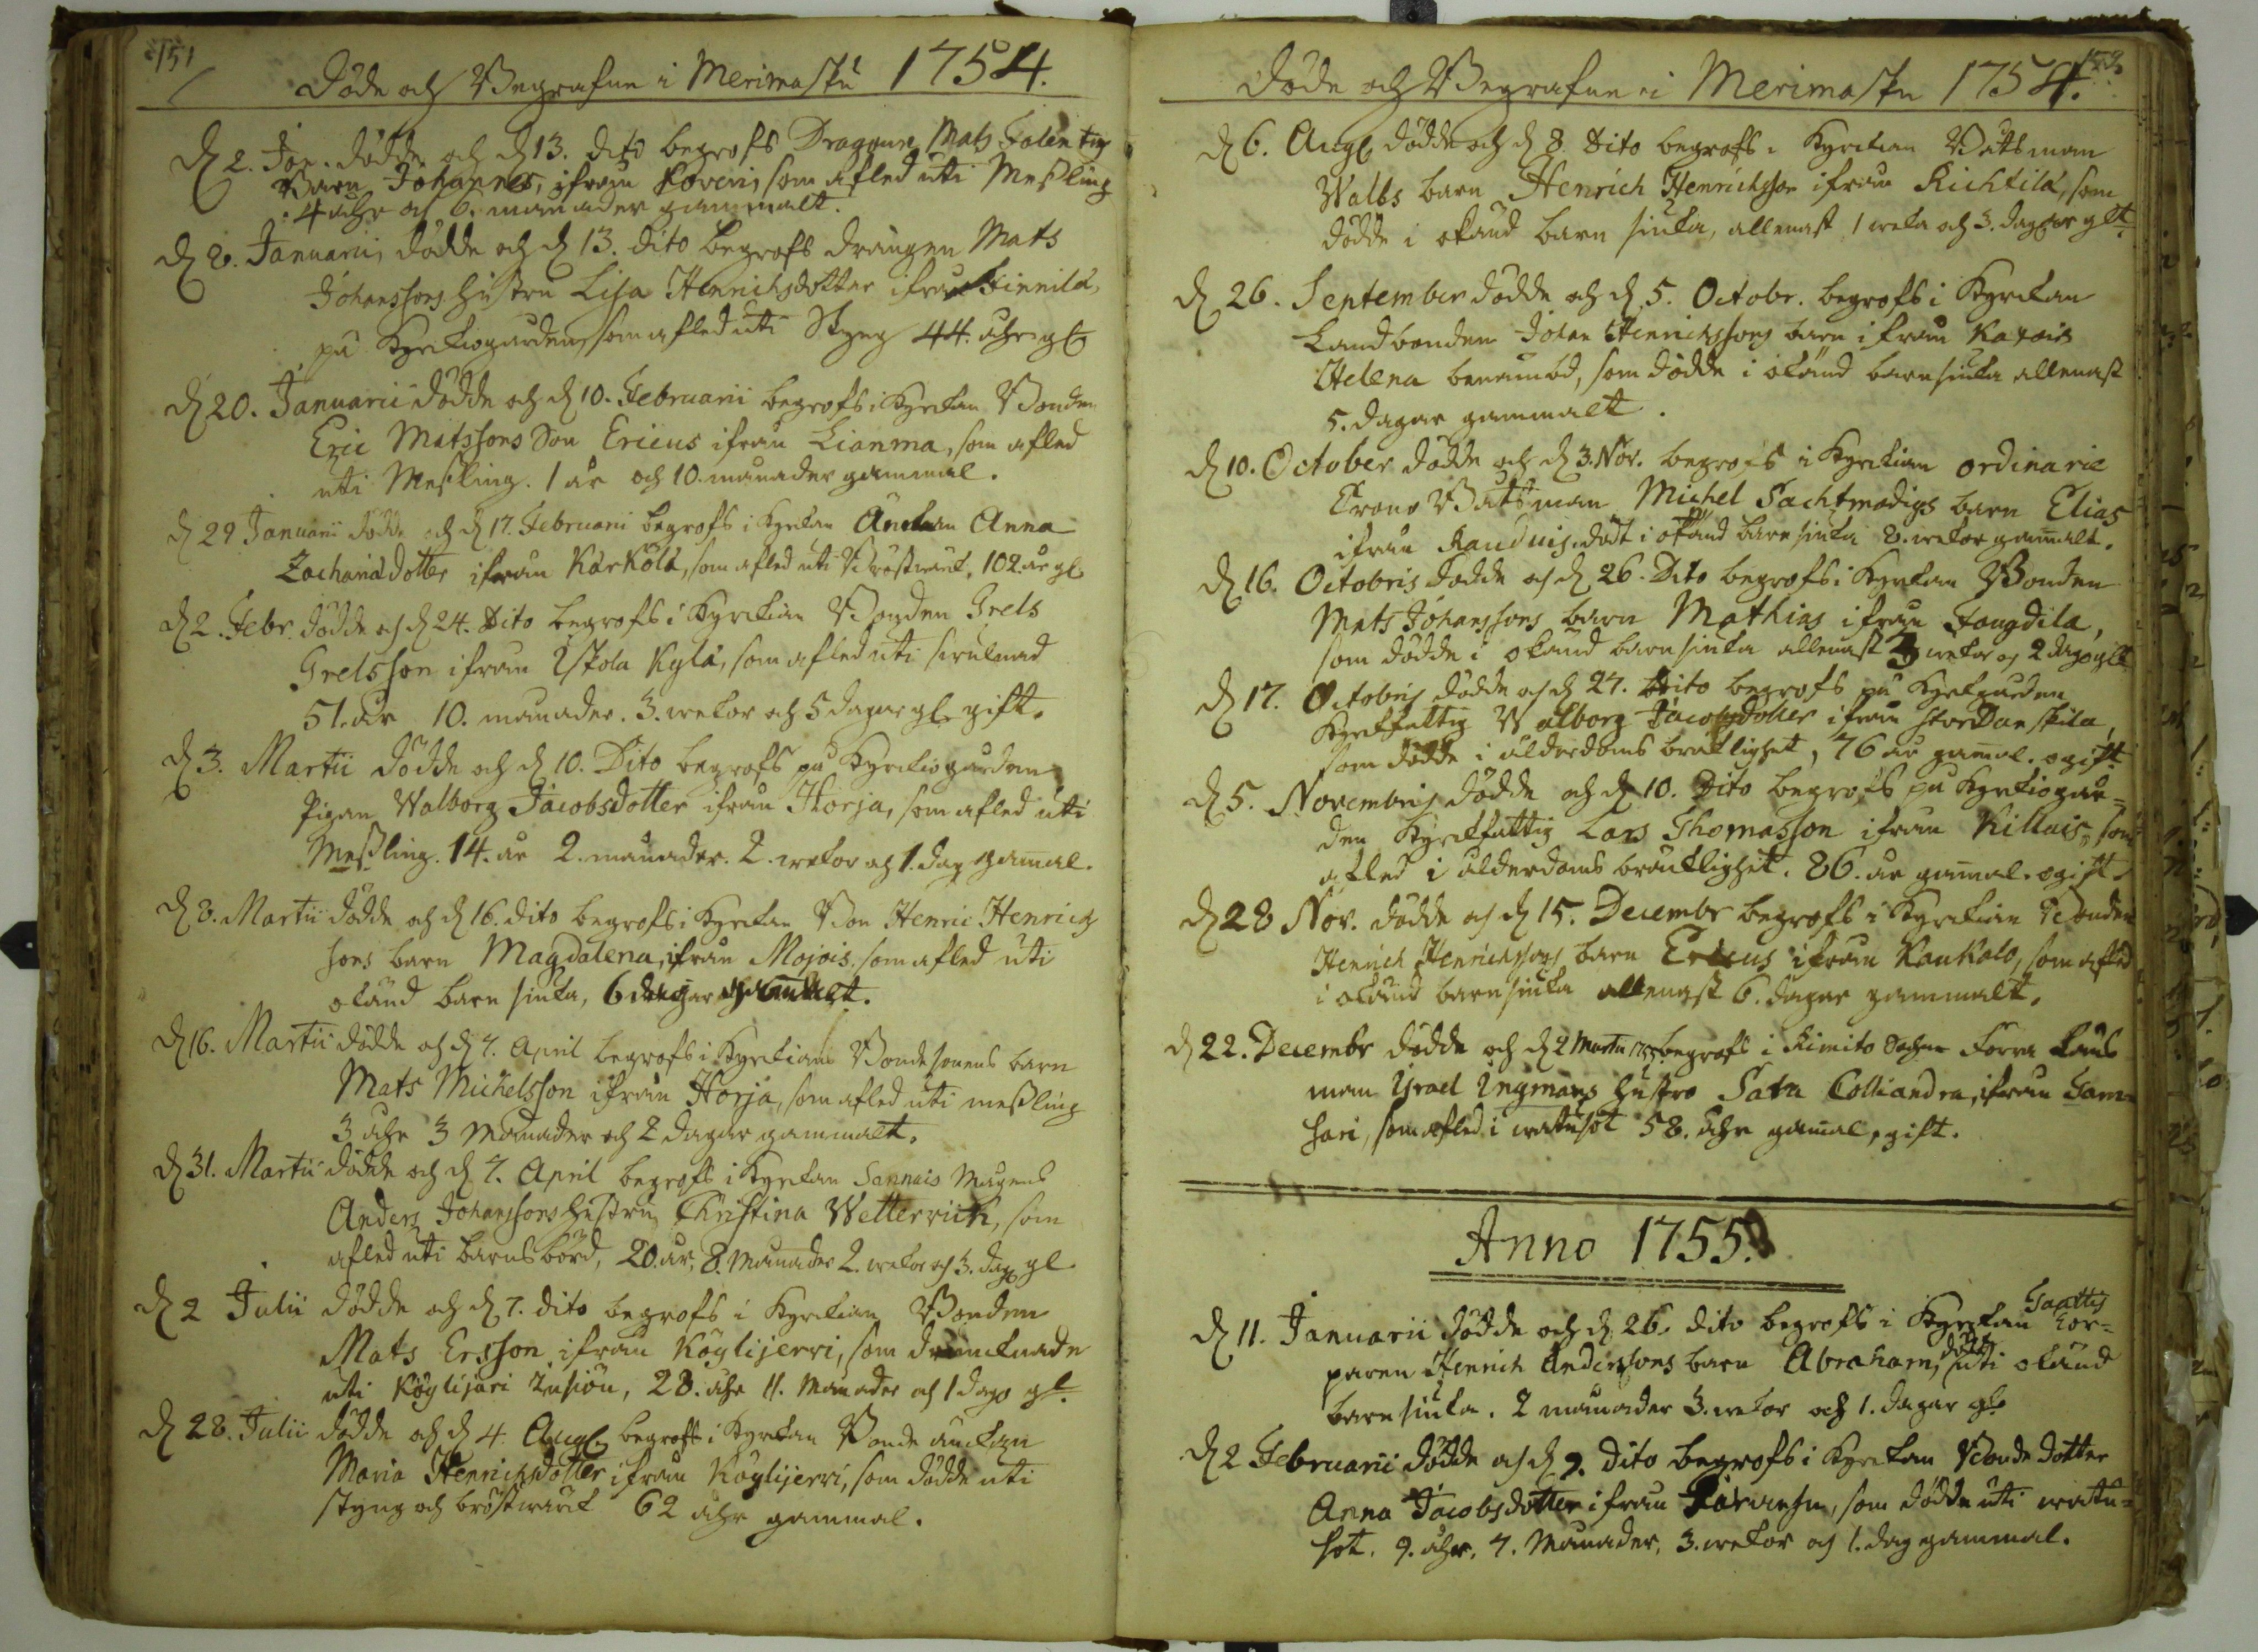 151
Döde och Begrafne i Merimasku 1754.
D 2. Jan. dödde och d 13. dito begrofs Dragoune Mats Falentin
Barn Johannes, ifrån Koveri, som afled uti Meßling
4 åhr och 6. månader gammalt.
D 8. Januarii dödde och d 13. dito begrofs drängen Mats
Johanssons hustru Lisa Henrichsdotter ifrån Finnilä,
på Kyrkiogården, som afled uti Styng 44. åhr gl
D 20. Januarii dödde och d 10. Februarii begrofs i Kyrkan Bonden
Eric Matssons Son Ericus ifrån Lianma, som afled
uti Meßling. 1 år och 10. månader gammal.
D 29 Januarii dödde och d 17. Februarii begrofs i Kyrkan Änckan Anna
Zachariædotter ifrån Kärkölä, som afled uti Bröstwärk. 102 år gl
D 2. Febr. dödde och d 24. Dito begrofs i Kyrkian Bonden Grels
Grelsson ifrån Iskola Kylä, som afled uti
51. år 10. månader. 3. wekor och 5 dagar gl. gift.
D 3. Martii dödde och d 10. Dito begrofs på Kyrkiogården
Pigan Walborg Jacobsdotter ifrån Horja, som afled uti
Meßling. 14. år 2. månader. 2. wekor och 1. dag gamal.
D 3. Martii dödde och d 16. dito begrofs i Kyrkan Bon Henric Henrich
sons barn Magdalena, ifrån Mojois som afled uti
okänd barn siuka, 6 dagar gammalt.
D 16. Martii dödde och d 7. April begrofs i Kyrkian Bondesonens barn
Mats Michelsson ifrån Horja, som afled uti meßling
3 åhr 3 Månader och 2 dagar gammalt.
D 31. Martii dödde och d 7. April begrofs i Kyrkan Sannais Mågens
Anders Johanssons hustru Christina Wetterrick, som
afled uti barnsbörd, 20. år, 8. Månader 2. wekor och 3. dag gl
D 2 Julii dödde och d 7. dito begrofs i Kyrkian Bonden
Mats Ersson ifrån Köylijerri, som drunknade
uti Köylijäri Insiön, 28. åhr 11. Månader och 1 dag gl.
D 28. Julii dödde och d 4. Aug begrofs i Kyrkan Bonde änckan
Maria Henrichsdotter ifrån Köylijerri, som dödde uti
styng och bröstwärk 62 åhr gammal.
Döde och Begrafne i Merimasku 1754.
D 6. Aug dödde och d 8. Dito begrofs i Kyrkian Båtsman
Walbs barn Henrich Henrichsson ifrån Kichtilä, som
dödde i okänd barn siuka, allenast 1 weka och 3. dagar glt.
D 26. September dödde och d 5. Octobr. begrofs i Kyrkan
Landbonden Johan Henrichssons barn ifrån Karois
Helena benämnd, som dödde i okänd barnsiuka allenast
5. dagar gammalt.
D 10. October dödde och d 3. Nov. begrofs i Kyrkian ordinarie
Crono Båtsman Michel Sachtmodigs barn Elias
ifrån Rauduis, dödt i okänd barnsiuka 8. wekor gammalt.
D 16. Octobris dödde och d 26. Dito begrofs i Kyrkan Bonden
Mats Johanssons barn Mathias ifrån Fougdila,
som dödde i okänd barnsiuka allenast 3 wekor och 2 dagar glt
D 17. Octobris dödde och d 27. Dito begrofs på Kyrkgården
Kyrkfattig Walborg Jacobsdotter ifrån Stor Danskila,
som dödde i ålderdoms bräcklighet, 76 år gamal. ogift.
D 5. Novembris dödde och d 10. Dito begrofs på Kyrkiogår=
den Kyrkfattig Lars Thomasson ifrån Killais, som
afled i ålderdoms bräcklighet. 86. år gammal. ogift.
D 28 Nov. dödde och d 15. Decembr begrofs i Kyrkian Bonden
Henrich Henrichssons barn Ericus ifrån Kankalo, som afled
i okänd barnsiuka allenast 6. dagar gammalt.
D 22. Decembr dödde och d 2 Martii 1755 begrofs i Kimito Sochn Förra Läns
man Israel Ingmans hustro Sara Colliandra, ifrån Sam=
sari, som afled i watusot 58. Åhr gamal, gift.
Anno 1755.
D 11. Januarii dödde och d 26. dito begrofs i Kyrkan Saattis Tor=
paren Henrich Anderssons barn Abraham, dödt uti okänd
barnsiuka. 2 månader 3. wekor och 1. dagar gl.
D 2 Februarii dödde och d 9. Dito begrofs i Kyrkan Bonde dotter
Anna Jacobsdotter ifrån som dödde uti watu=
sot. 9. åhr. 7. Månader. 3. wekor och 1. dag gammal.